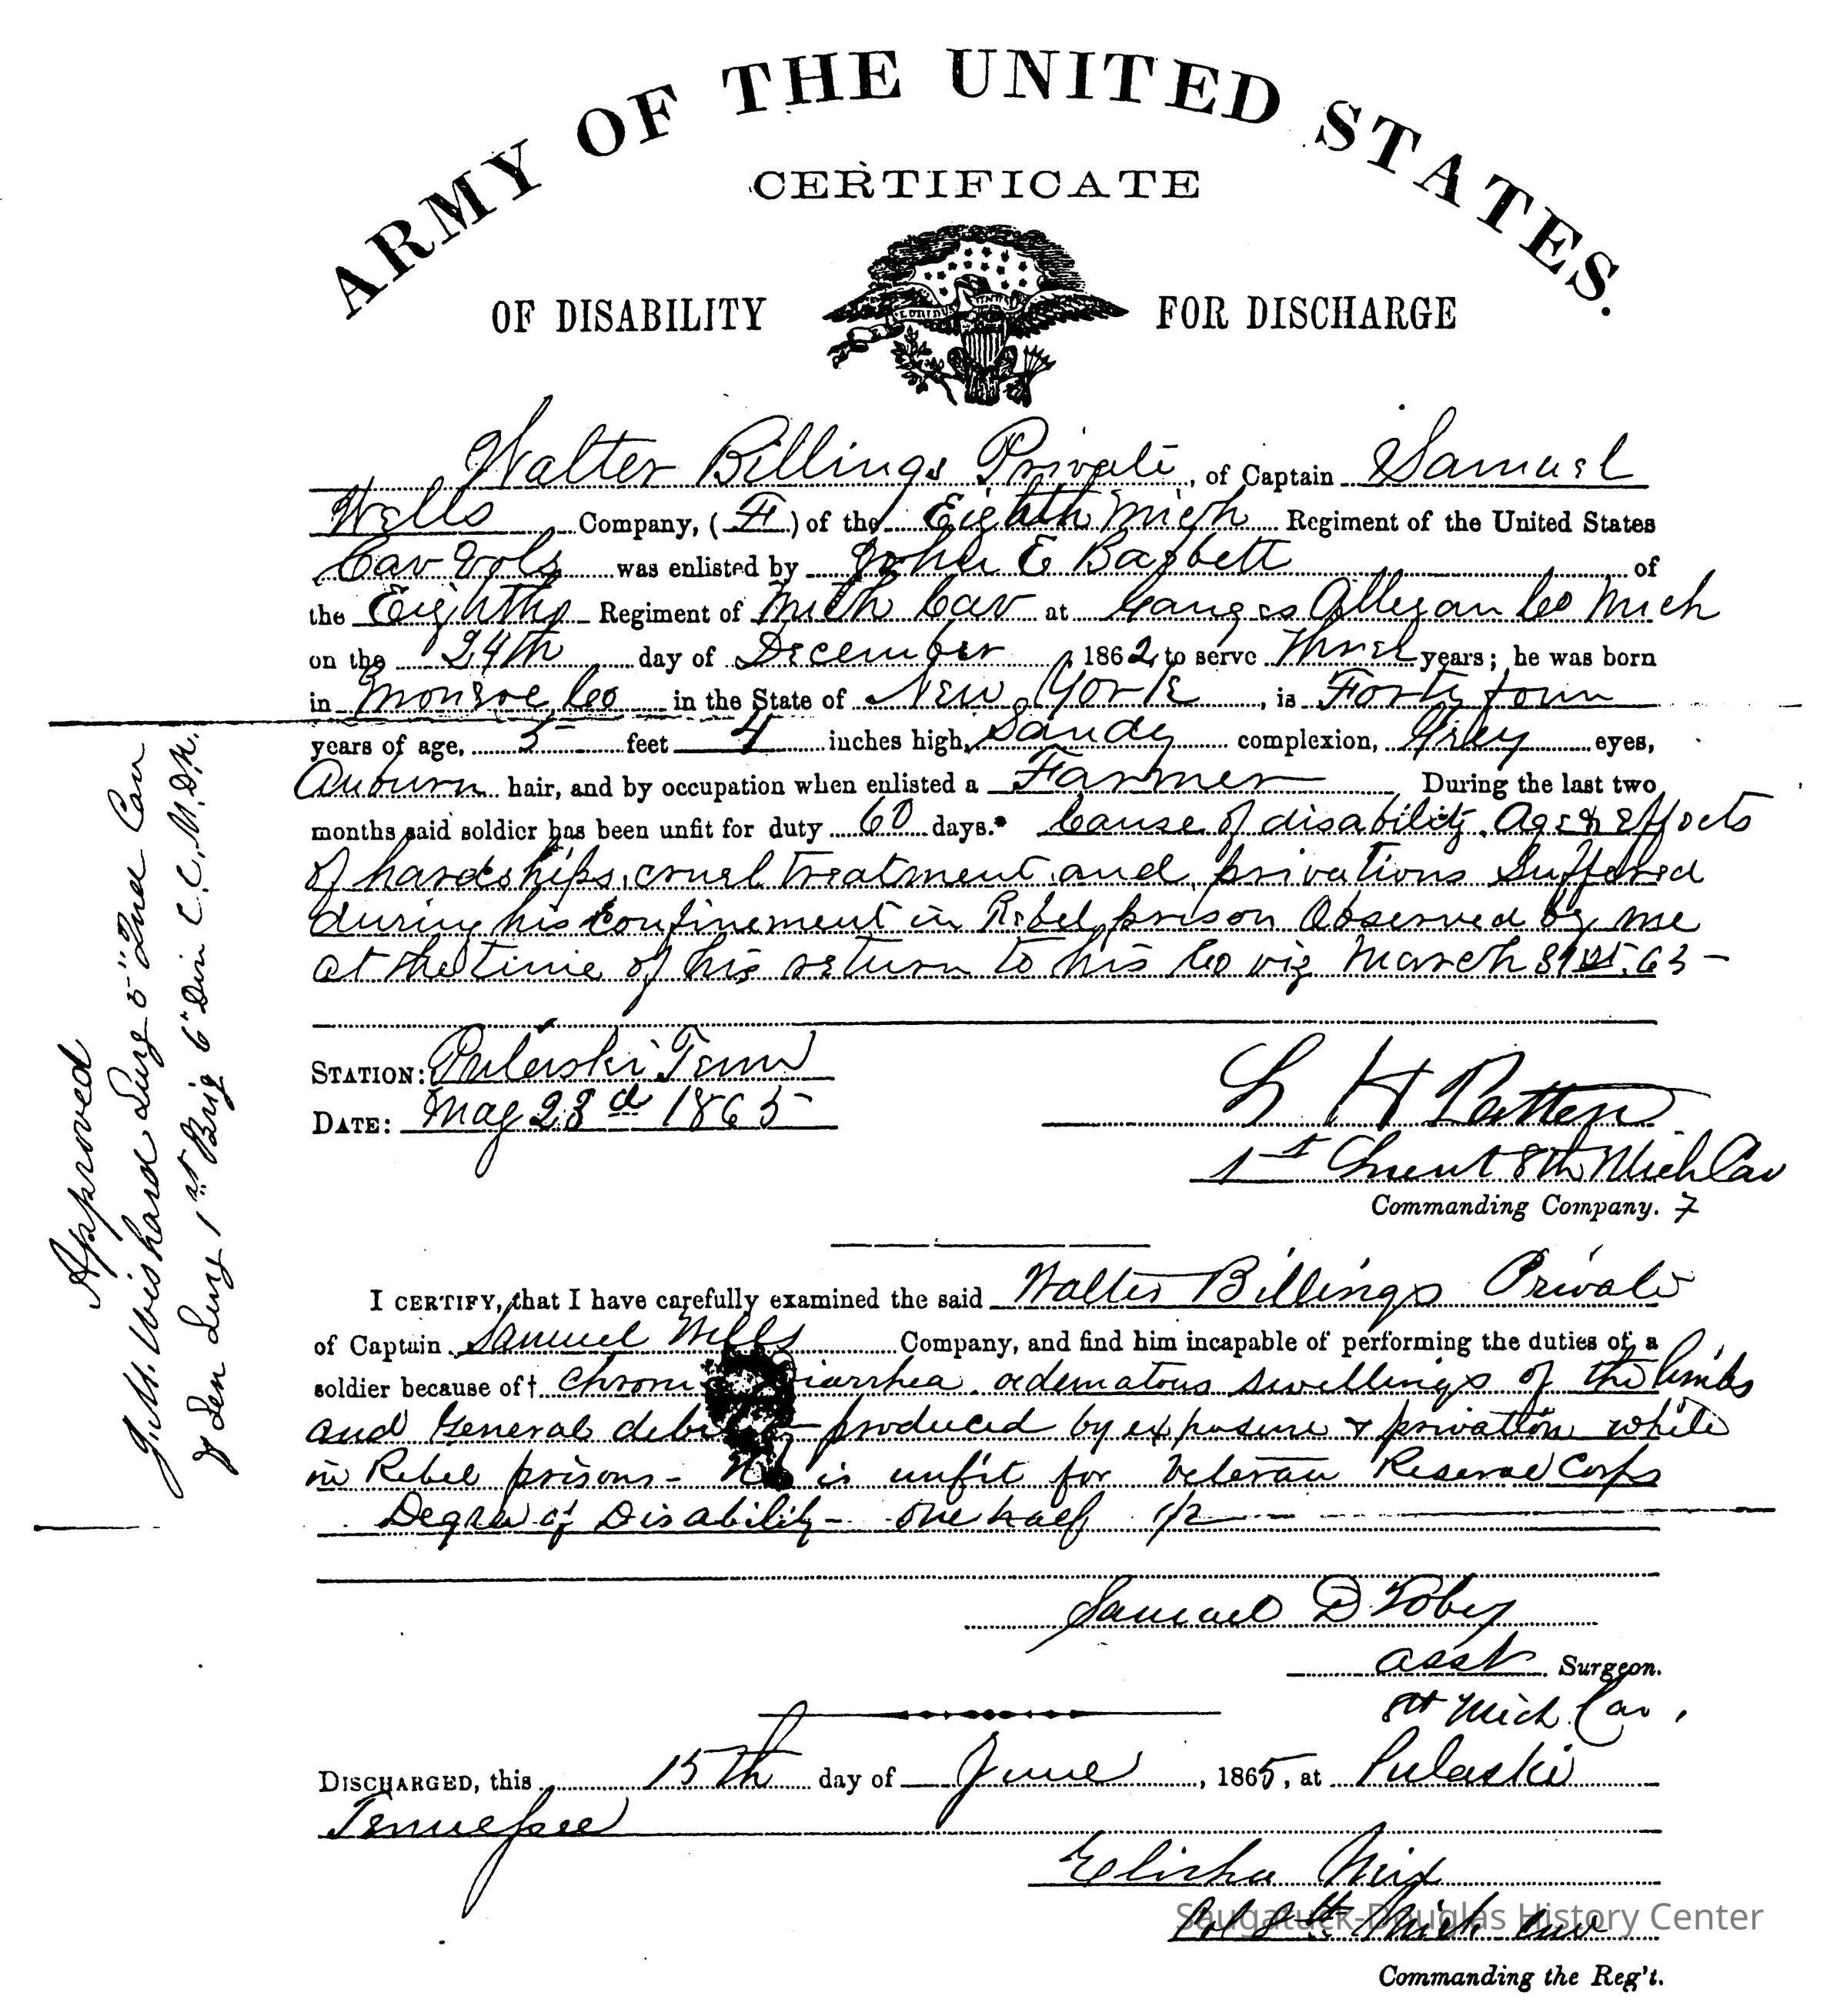 ARMY OF THE UNITED STATES.
CERTIFICATE
OF DISABILITY FOR DISCHARGE
Walter Billings Private, of Captain Samuel
Wells Company, (F) of the Eighth Mich Regiment of the United States
Cav Vols was enlisted by John E Babbett of
the Eighth Regiment of Mich Cav at Ganges Allegan Co Mich
on the 24th day of December, 1862, to serve Three years; he was born
in Monroe Co in the State of New York, is Forty four
years of age, 5 feet 4 inches high, Sandy complexion, Grey eyes,
Auburn hair, and by occupation when enlisted a Farmer During the last two
months said soldier has been unfit for duty 60 days.* Cause of disability. Age & effects
of hardships, cruel treatment and privations Suffered
during his confinement in Rebel prison Observed by me
at the time of his return to his Co viz March 31st. 65 –
STATION: Pulaski Tenn
DATE: May 23d 1865
L H Patten
1st Lieut 8th Mich Cav
Commanding Company. F
I CERTIFY, that I have carefully examined the said Walter Billings Private
of Captain Samuel Wells Company, and find him incapable of performing the duties of a
soldier because of† Chron iarrhea. odematous swellings of the limbs
and General deb – produced by exposure & privation while
in Rebel prisons – is unfit for Veteran Reserve Corps
Degree of Disability – One half 1/2
Samuel D Tobey
asst Surgeon.
8th Mich Cav,
DISCHARGED, this 15th day of June, 1865, at Pulaski
Tennessee
Elisha Mix
Col 8th Mich Cav
Commanding the Reg't.
Approved
J. M. Wishard Surg 5" Ind Cav
Surg 1st Brig 6" Div C.C.M.D.M.
Saugatuck-Douglas History Center